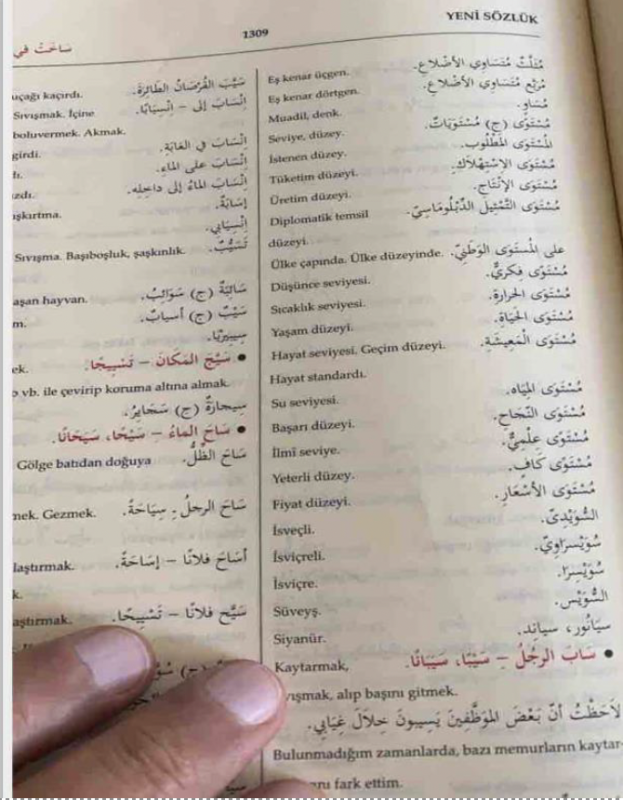 YENİ SÖZLÜK
1309
سَاحَتْ في
مُثَلَّثٌ مُتَسَاوِي الأَضْلاَعِ. Eş kenar üçgen.
مُرَبَّعٌ مُتَسَاوِي الأَضْلاَعِ. Eş kenar dörtgen.
مُسَاوٍ. Muadil, denk.
مُسْتَوًى (ج) مُسْتَوَيَاتٌ. Seviye, düzey.
المُسْتَوَى المَطْلُوب. İstenen düzey.
مُسْتَوَى الاِسْتِهْلاَكِ. Tüketim düzeyi.
مُسْتَوَى الإِنْتَاجِ. Üretim düzeyi.
مُسْتَوَى التَّمْثِيلِ الدِّبْلُومَاسِيّ. Diplomatik temsil
düzeyi.
على المُسْتَوَى الوَطَنِيّ. Ülke çapında. Ülke düzeyinde.
مُسْتَوًى فِكْرِيٌّ. Düşünce seviyesi.
مُسْتَوَى الحَرَارَةِ. Sıcaklık seviyesi.
مُسْتَوَى الحَيَاةِ. Yaşam düzeyi.
مُسْتَوَى المَعِيشَةِ. Hayat seviyesi, Geçim düzeyi.
Hayat standardı.
مُسْتَوَى المِيَاه. Su seviyesi.
مُسْتَوَى النَّجَاحِ. Başarı düzeyi.
مُسْتَوًى عِلْمِيٌّ. İlmî seviye.
مُسْتَوًى كَافٍ. Yeterli düzey.
مُسْتَوَى الأَسْعَارِ. Fiyat düzeyi.
السُّوَيْدِيّ. İsveçli.
سُوَيْسْرَاوِيٌّ. İsviçreli.
سُوَيْسْرَا. İsviçre.
السُّوَيْس. Süveyş.
سِيَانُور، سياند. Siyanür.
• سَابَ الرَّجُلُ – سَيْبًا، سَيَبَانًا. Kaytarmak,
vışmak, alıp başını gitmek.
لاَحَظْتُ أنّ بَعْضَ المُوَظَّفِينَ يَسِيبونَ خِلاَلَ غِيَابِي.
Bulunmadığım zamanlarda, bazı memurların kaytar-
fark ettim.
سَيَّبَ القُرْصَانُ الطَائِرَةَ. uçağı kaçırdı.
اِنْسَابَ إلى – اِنْسِيَابًا. Sıvışmak. İçine
boluvermek. Akmak.
اِنْسَابَ في الغَابَةِ. girdi.
اِنْسَابَ على المَاءِ.
اِنْسَابَ المَاءُ إلى دَاخِلِه.
إِسَابَةٌ. şkırtma.
اِنْسِيَابِي.
تَسَيُّبٌ. Sıvışma. Başıboşluk, şaşkınlık.
سَائِبَةٌ (ج) سَوَائِبُ. aşan hayvan.
سَيْبٌ (ج) أسيابٌ.
سِيبِيرْيَا.
• سَيَّجَ المَكَانَ – تَسْيِيجًا.
vb. ile çevirip koruma altına almak.
سِيجَارَةٌ (ج) سَجَايِرُ.
• سَاحَ المَاءُ – سَيْحًا، سَيَحَانًا.
سَاحَ الظِّلُّ. Gölge batıdan doğuya
سَاحَ الرجلُ – سِيَاحَةً. mek. Gezmek.
أَسَاحَ فلانًا – إسَاحَةً. laştırmak.
سَيَّحَ فلانًا – تَسْيِيحًا. aştırmak.